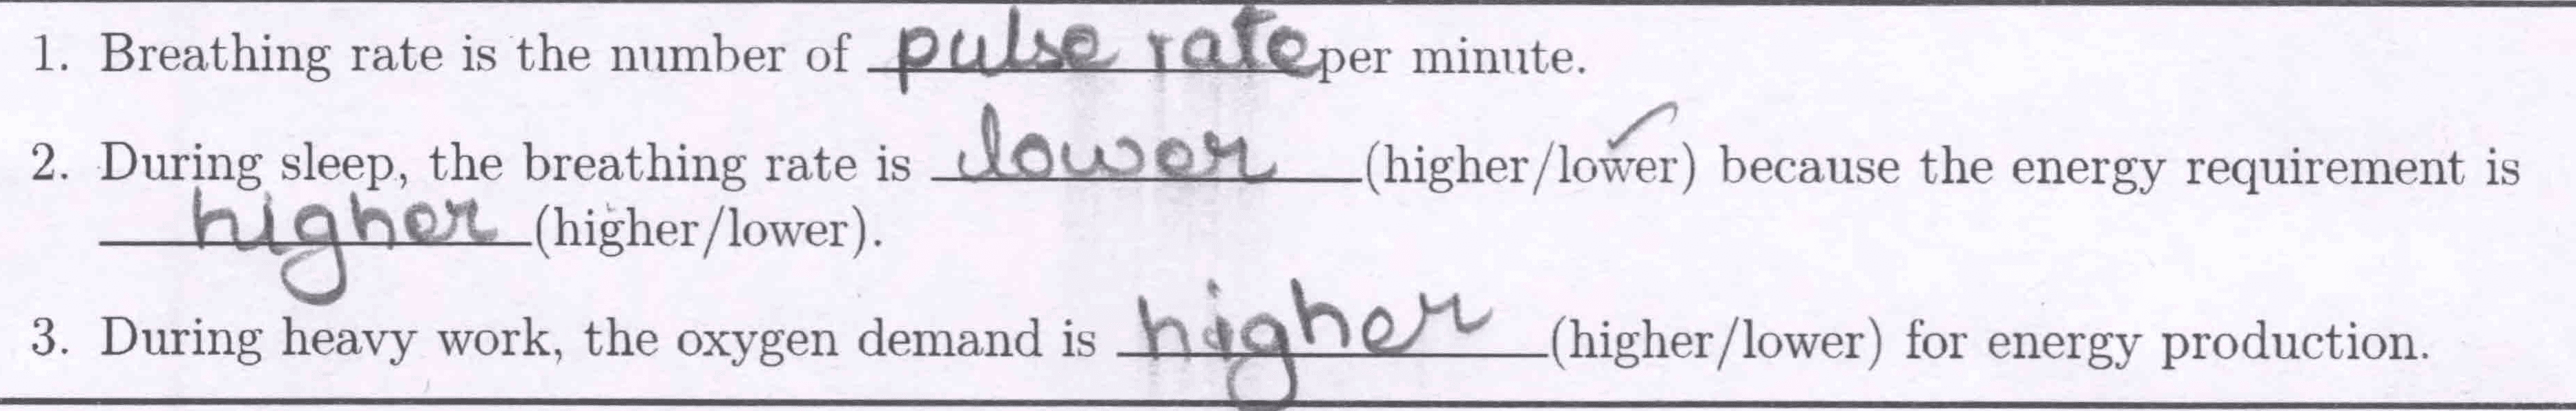 1. Breathing rate is the number of pulse rate per minute.
2. During sleep, the breathing rate is lower (higher/lower) because the energy requirement is
higher (higher/lower).
3. During heavy work, the oxygen demand is higher (higher/lower) for energy production.